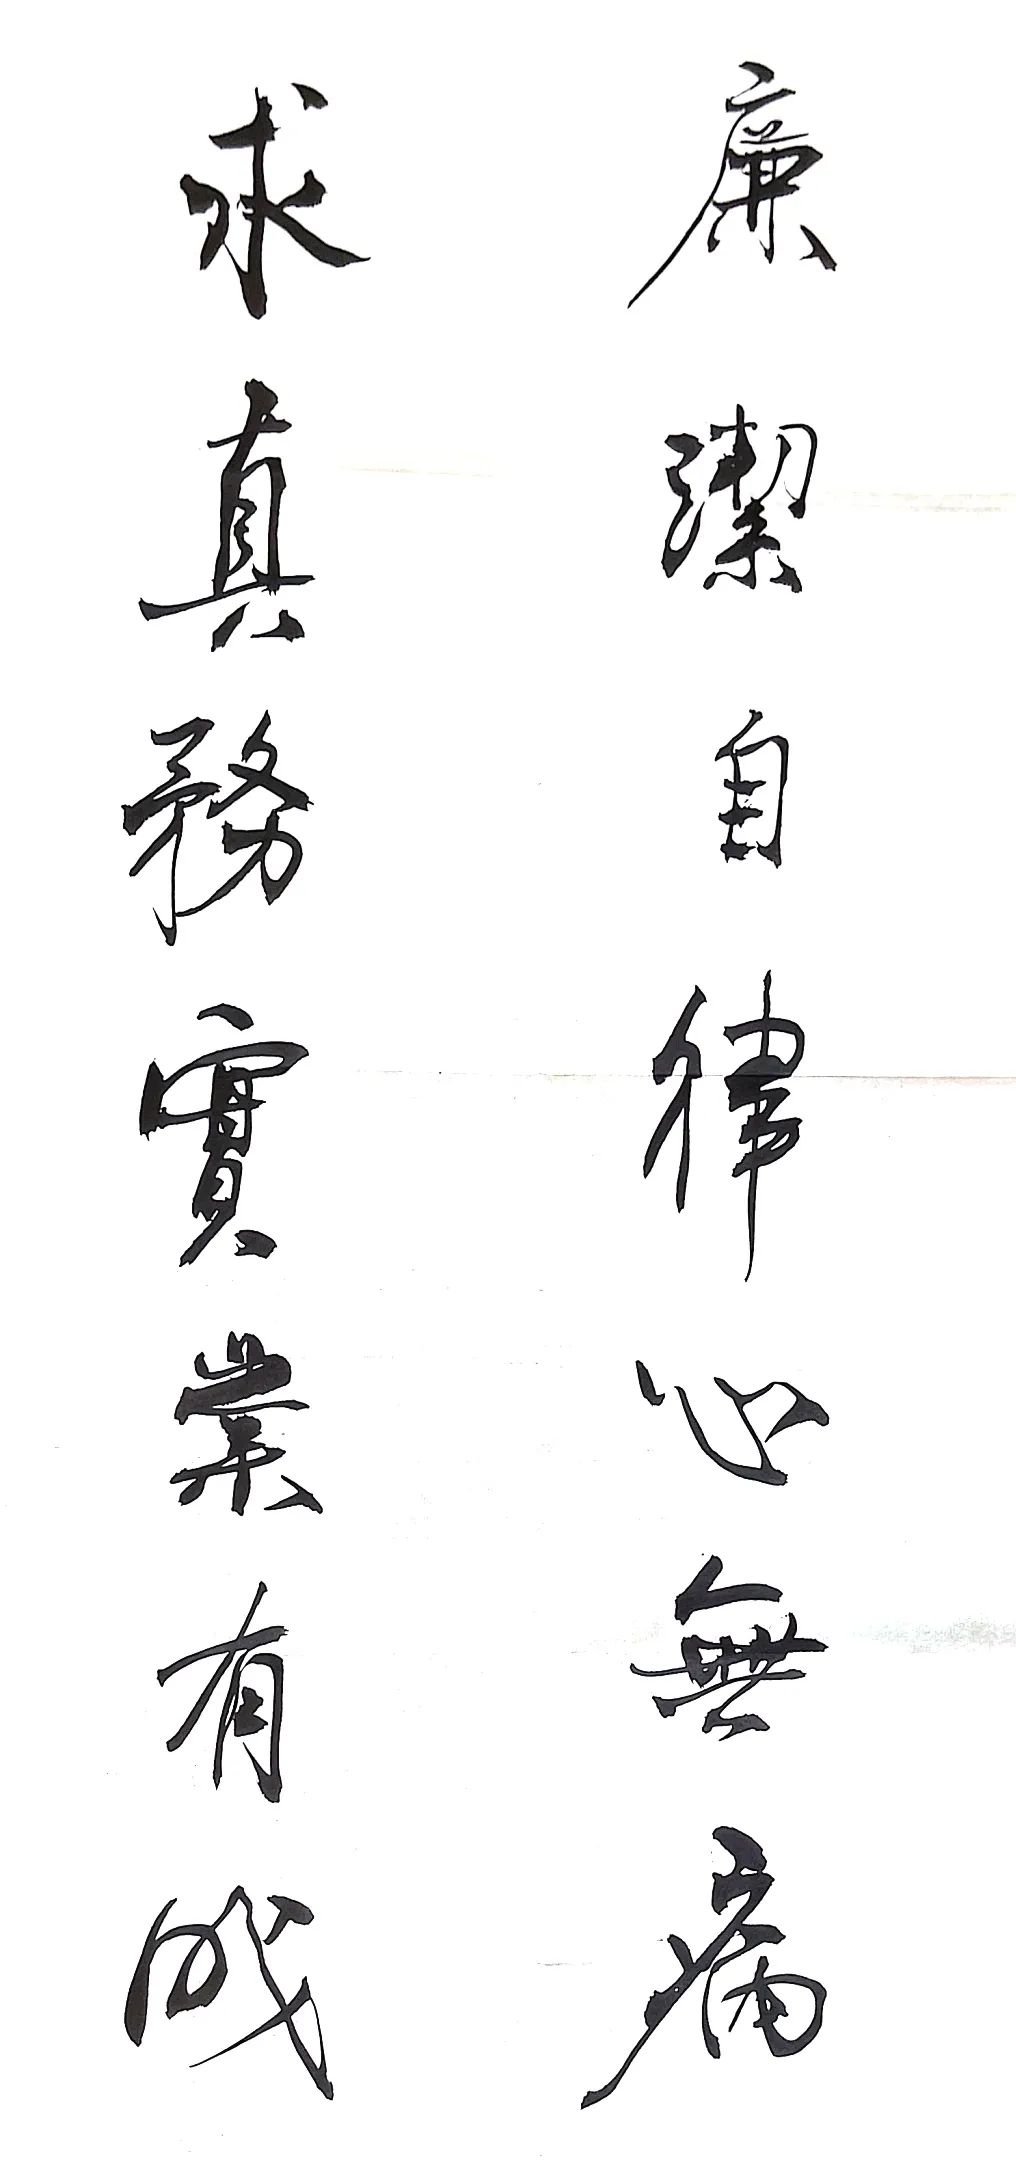 廉潔自律心無病
求真務實業有成